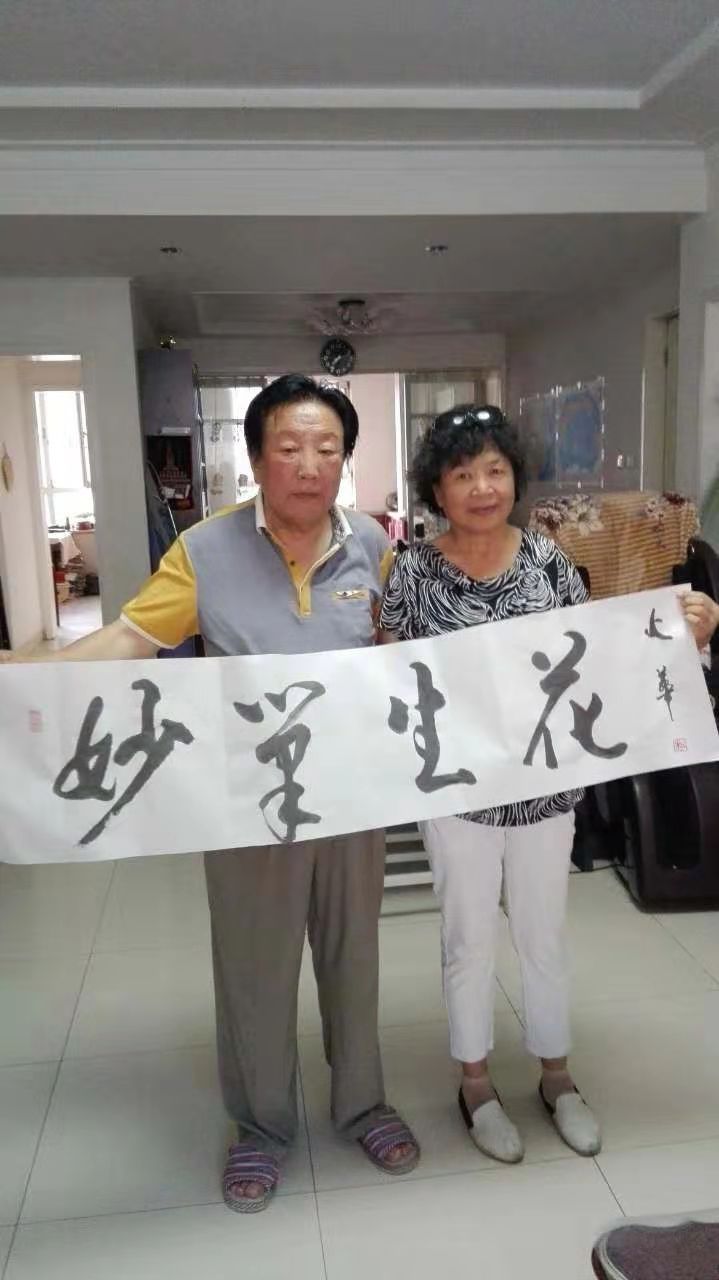 妙筆生花
華